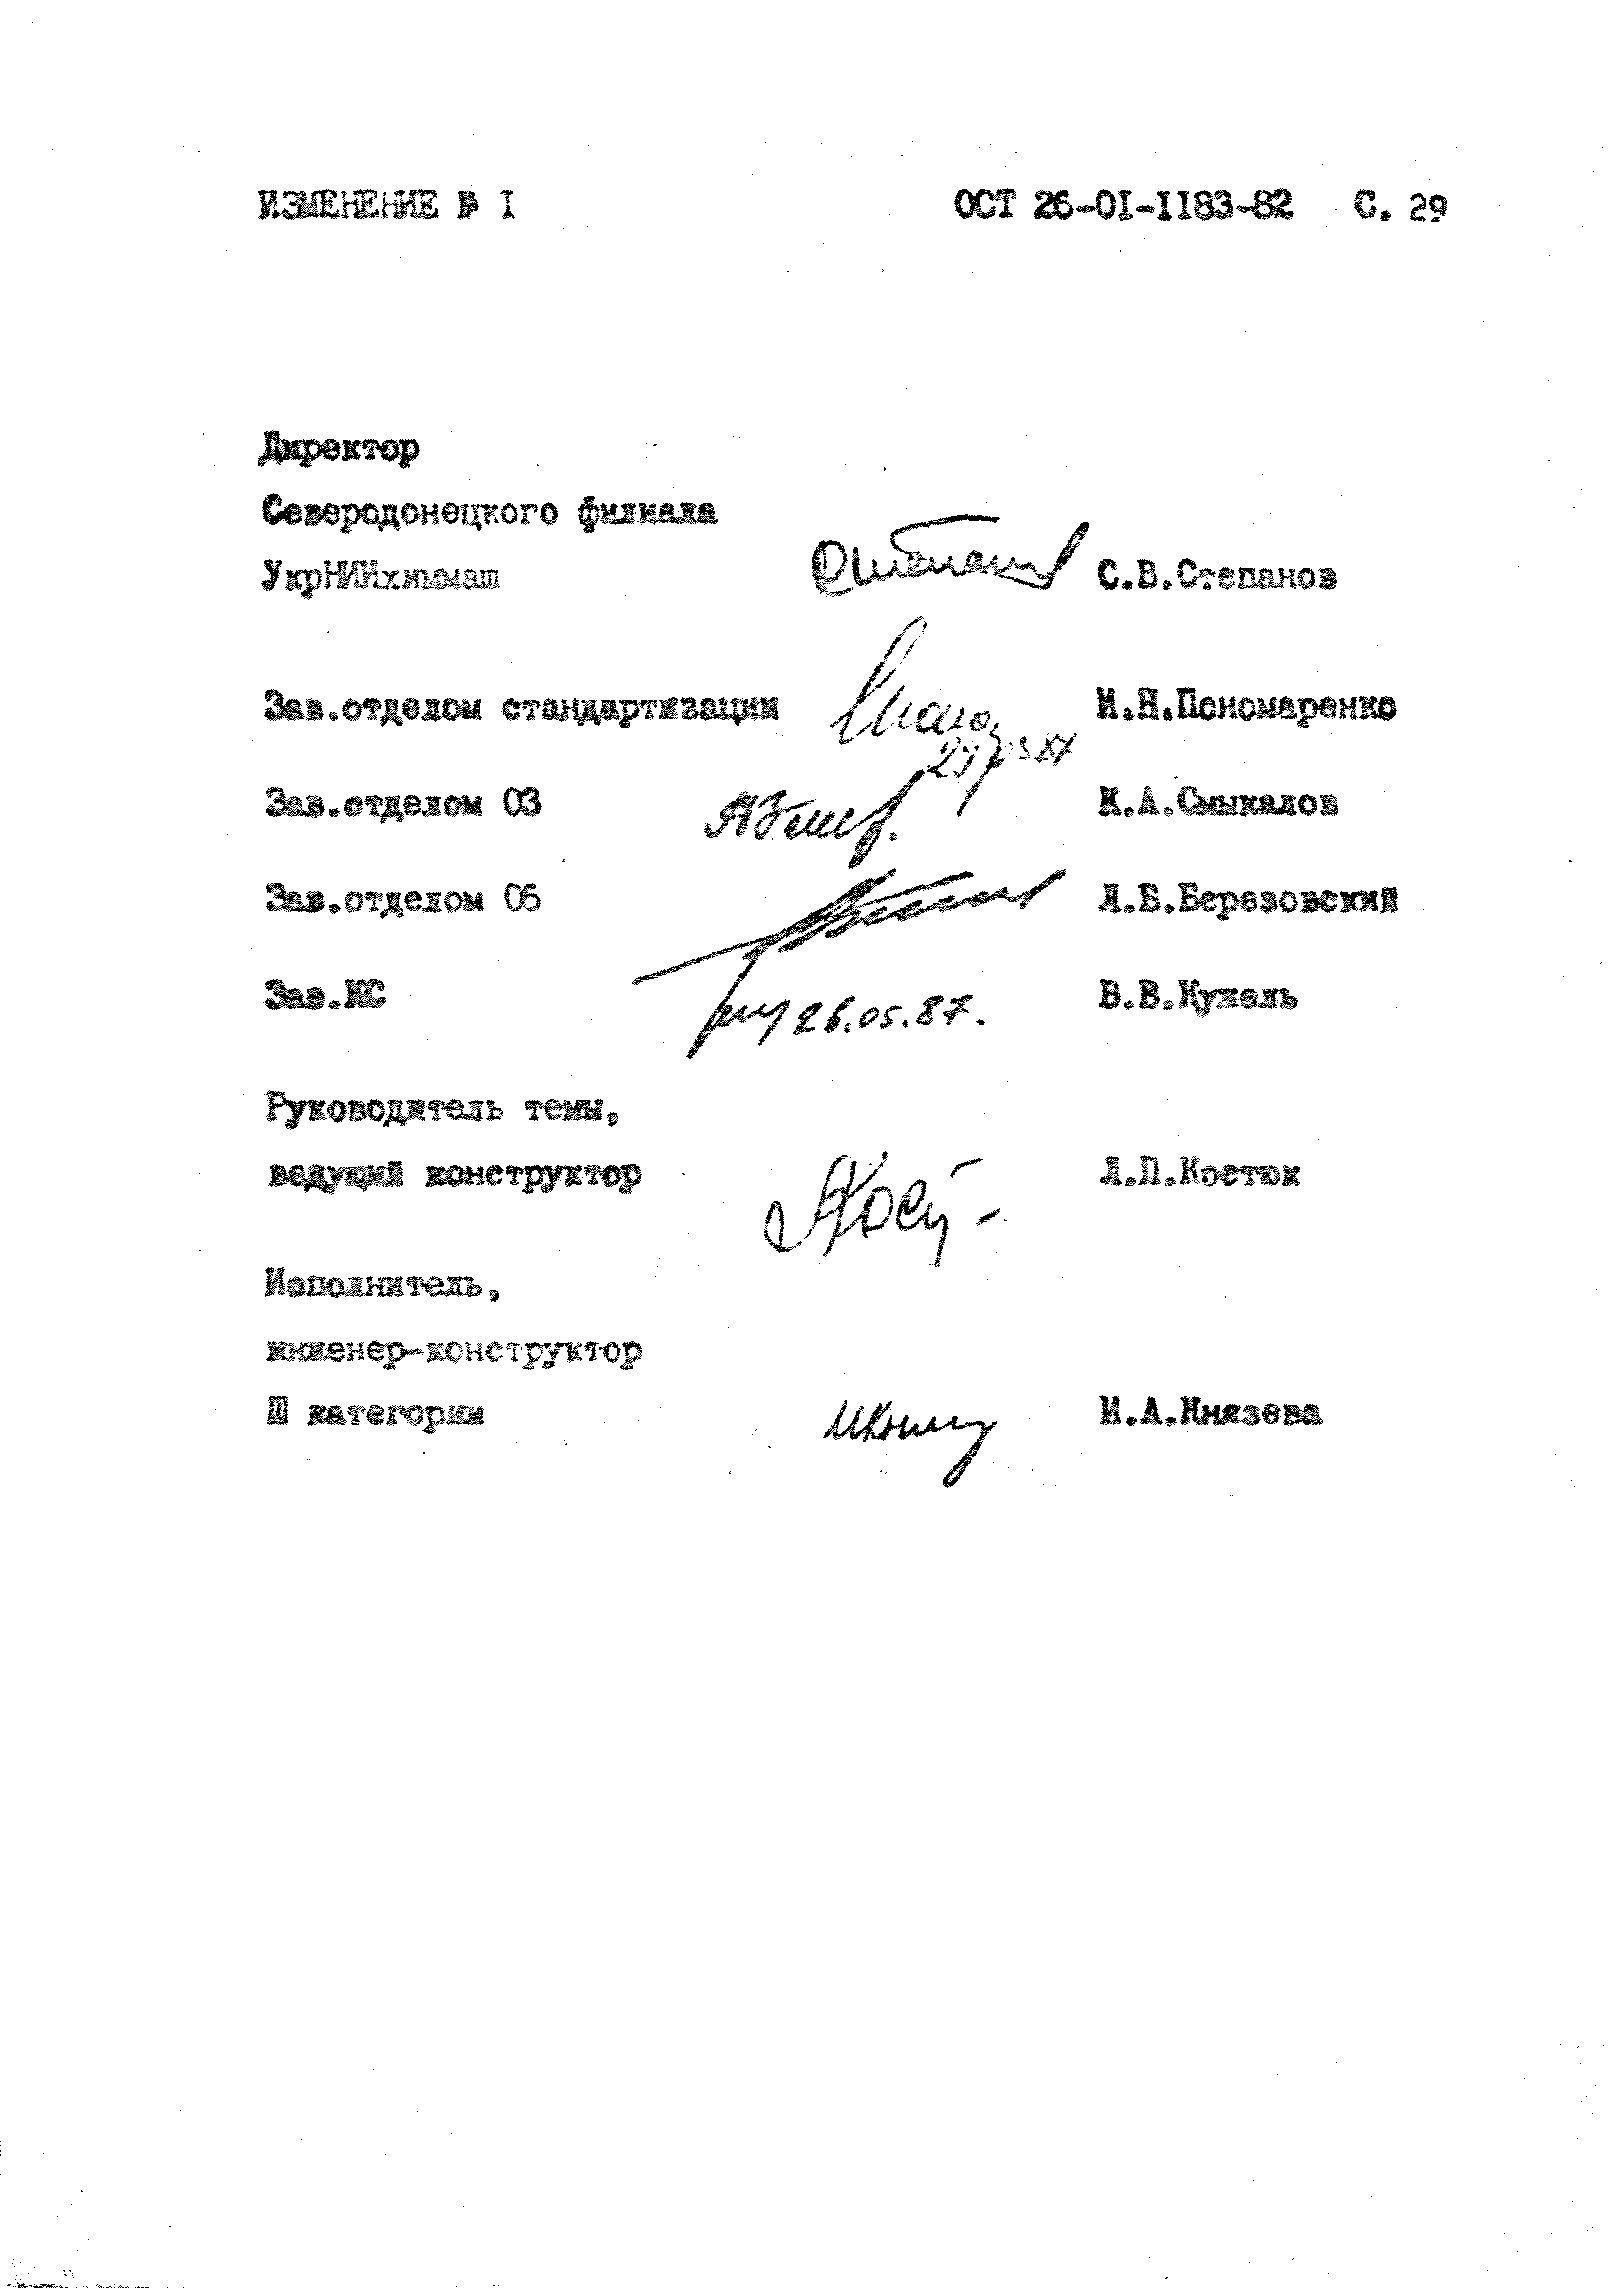 ИЗМЕНЕНИЕ № I ОСТ 26-01-1183-82 С. 29
Директор
Северодонецкого филиала
УкрНИИхиммаш С.В.Степанов
Зав.отделом стандартизации И.Н.Пономаренко
Зав.отделом 03 К.А.Смыкалов
Зав.отделом 06 Л.Б.Березовский
Зав.КС 26.05.87. В.В.Кужель
Руководитель темы,
ведущий конструктор Л.П.Костюк
Исполнитель,
инженер-конструктор
Ш категории И.А.Князева